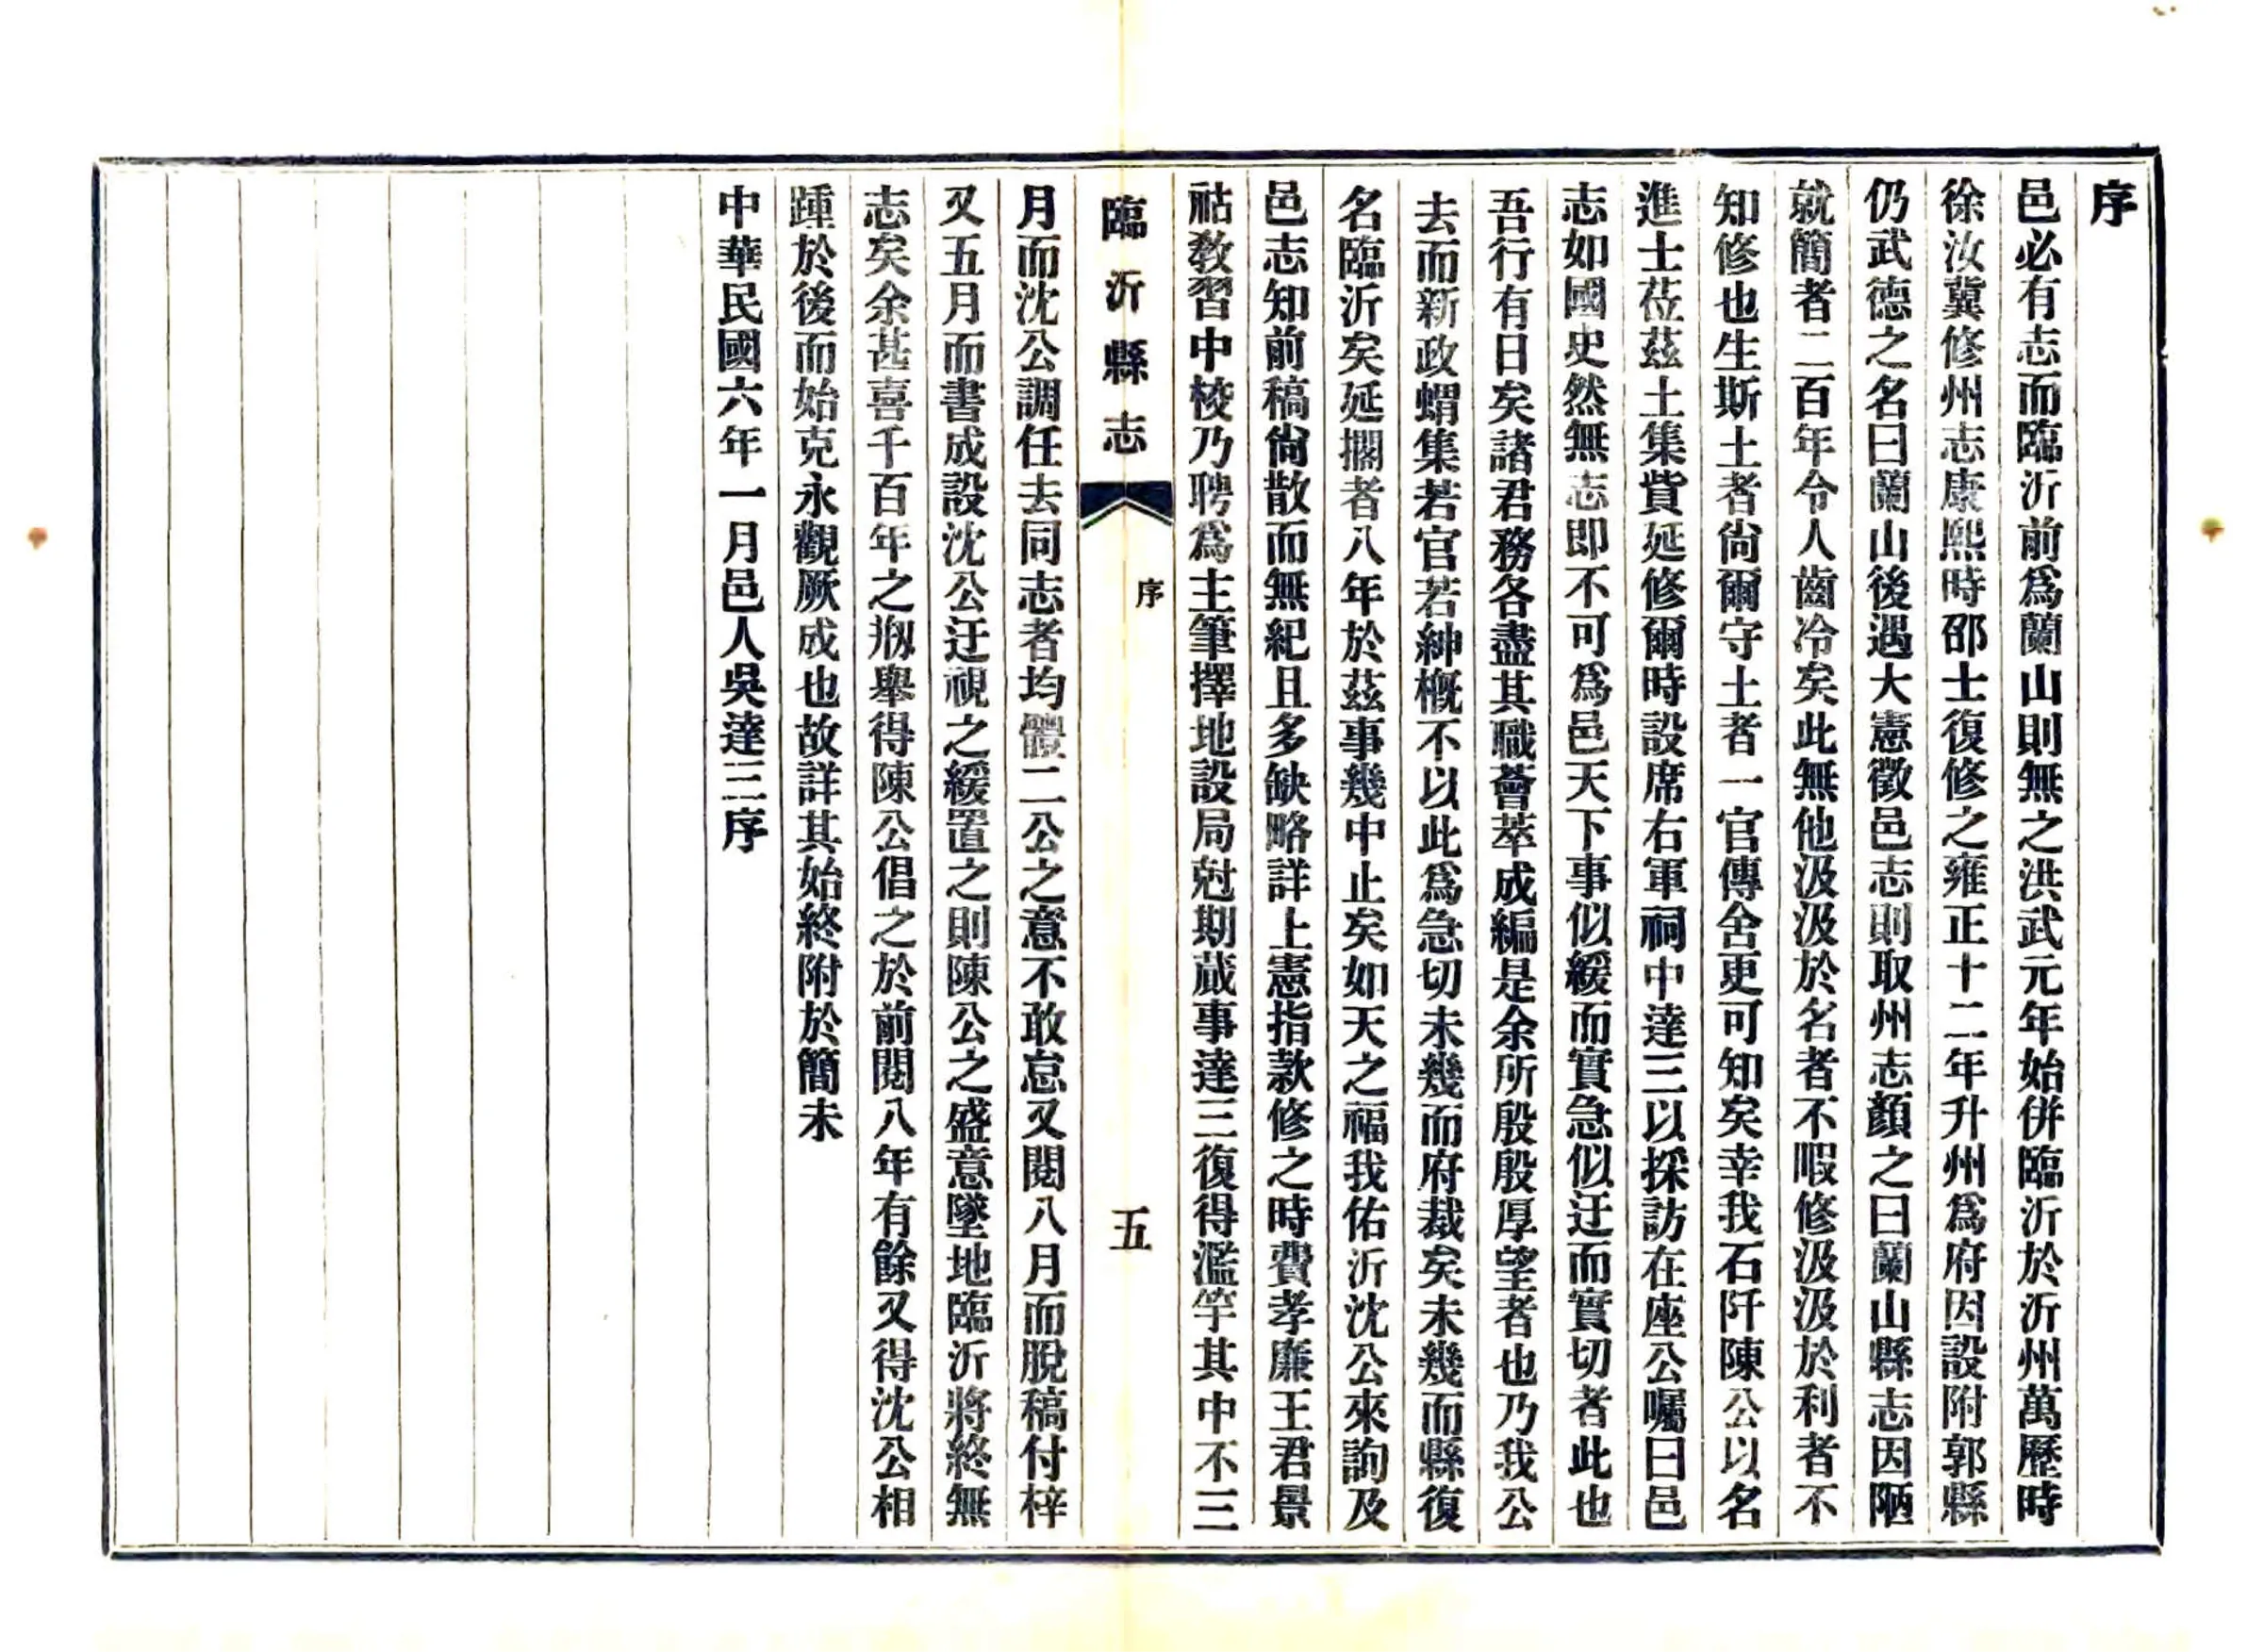 序
邑必有志而臨沂前爲蘭山則無之洪武元年始併臨沂於沂州萬歷時
徐汝冀修州志康熙時邵士復修之雍正十二年升州爲府因設附郭縣
仍武德之名曰蘭山後遇大憲徵邑志則取州志顏之曰蘭山縣志因陋
就簡者二百年令人齒冷矣此無他汲汲於名者不暇修汲汲於利者不
知修也生斯土者尙爾守土者一官傳舍更可知矣幸我石阡陳公以名
進士莅茲土集貲延修爾時設席右軍祠中達三以採訪在座公囑曰邑
志如國史然無志即不可爲邑天下事似緩而實急似迂而實切者此也
吾行有日矣諸君務各盡其職薈萃成編是余所殷殷厚望者也乃我公
去而新政蝟集若官若紳槪不以此爲急切未幾而府裁矣未幾而縣復
名臨沂矣延擱者八年於茲事幾中止矣如天之福我佑沂沈公來詢及
邑志知前稿尙散而無紀且多缺略詳上憲指款修之時費孝廉王君景
祜敎習中棱乃聘爲主筆擇地設局尅期蕆事達三復得濫竽其中不三
臨沂縣志
序
五
月而沈公調任去同志者均體二公之意不敢怠又閱八月而脫稿付梓
又五月而書成設沈公迂視之緩置之則陳公之盛意墜地臨沂將終無
志矣余甚喜千百年之剏舉得陳公倡之於前閱八年有餘又得沈公相
踵於後而始克永觀厥成也故詳其始終附於簡末
中華民國六年一月邑人吳達三序